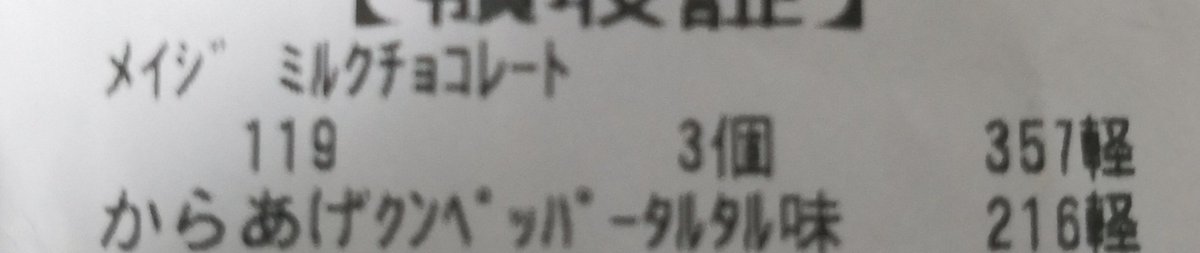 【領収証】
ﾒｲｼﾞ ﾐﾙｸﾁｮｺﾚｰﾄ
119 3個 357軽
からあげｸﾝﾍﾟｯﾊﾟｰﾀﾙﾀﾙ味 216軽